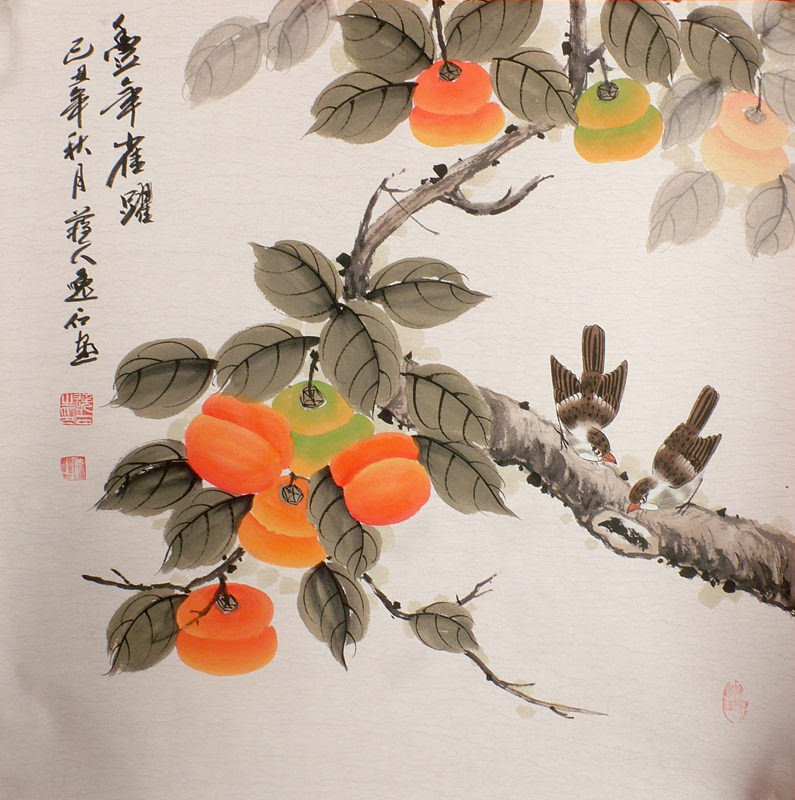 豐年雀躍
己丑年秋月人逸石畫